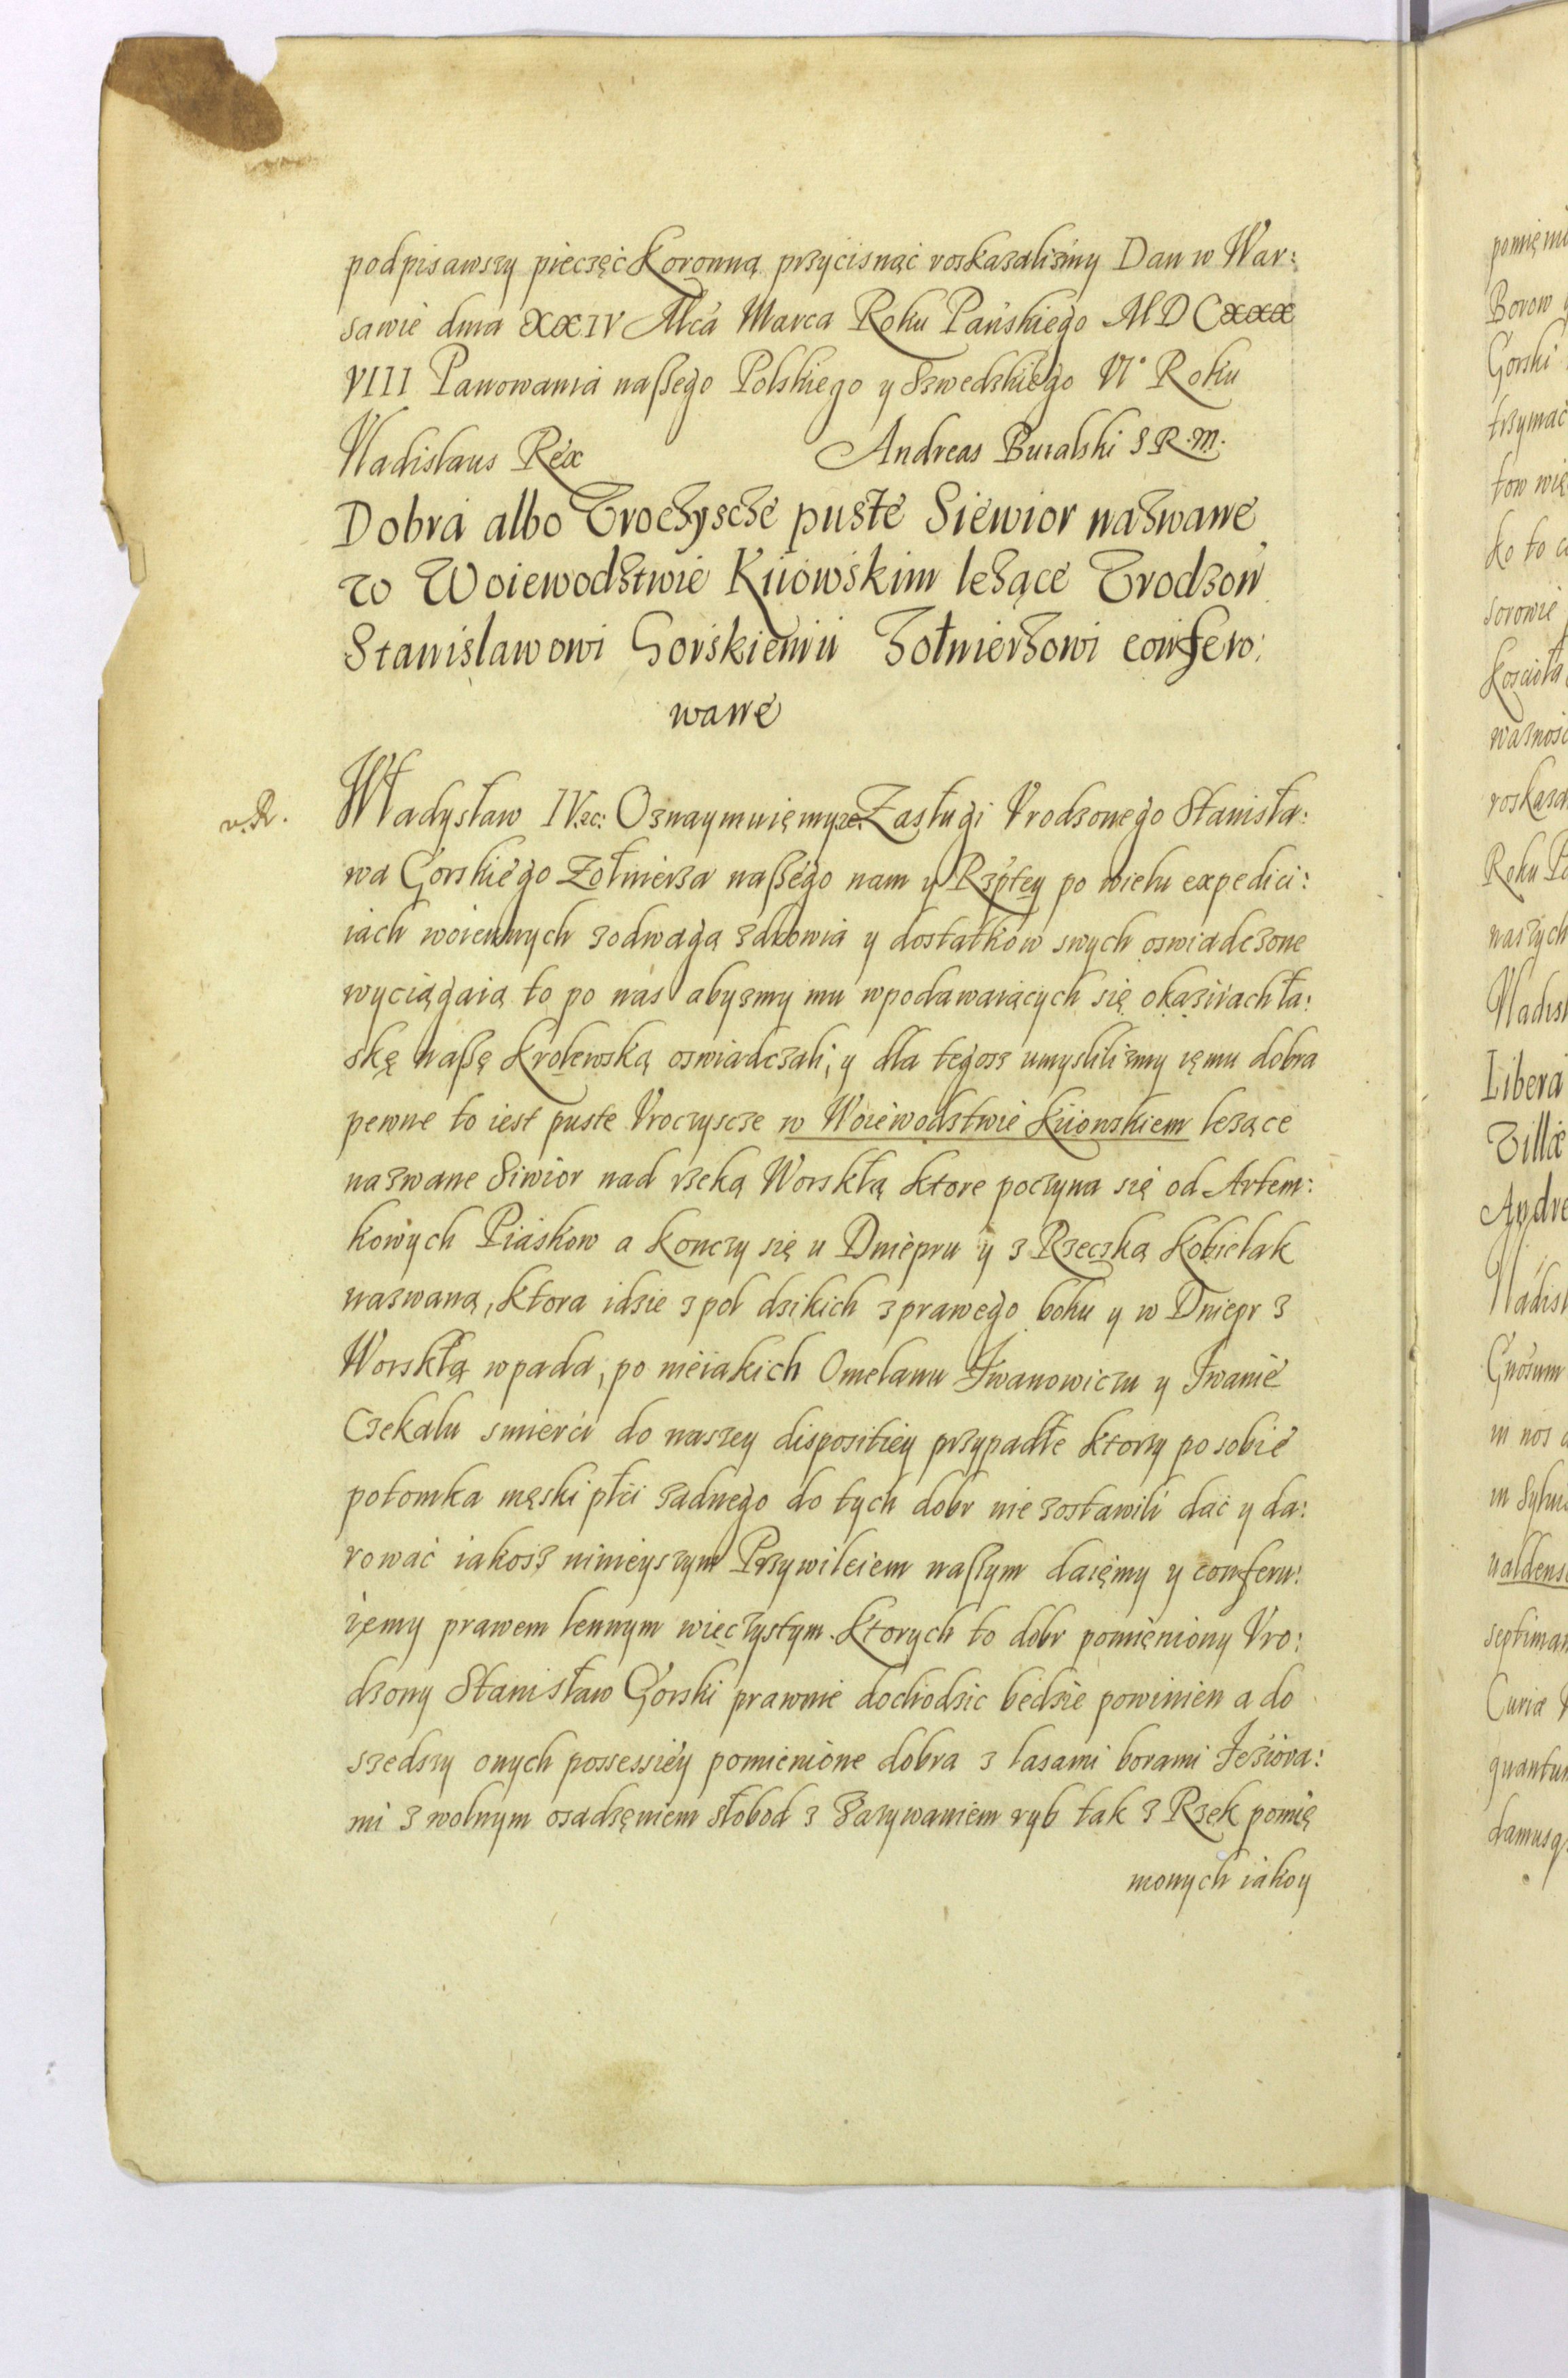 podpisawszy pieczęć Koronną przycisnąć roskazalismy Dan w War:
sawie dnia XXIV Mcá Marca Roku Pańskiego MDCXXX
VIII Panowania naszego Polskiego y Szwedzkiego VIº Roku
Vladislaus Rex Andreas Buialski S R. M.
Dobra albo Vroczyscze puste Siewior nazwane
w Woiewodztwie Kiiowskim leżące Vrodzon
Stanisławowi Gorskiemu Żołnierzowi confero:
wane
v. R.
Władysław IV. &c: Oznaymuięmy &c. Zasługi Vrodzonego Stanisła:
wa Gorskiego Żołnierza naszego nam y Rzptey po wielu expedici:
iach woiennych z odwagą zdrowia y dostatkow swych oswiadczone
wyciągaią to po nas abysmy mu w podawaiących się okaziiach ła:
skę naszę Krolewską oswiadczali, y dla tegosz umyslilismy iemu dobra
pewne to iest puste Vroczyscze w Woiewodztwie Kiiowskiem leżące
nazwane Siwior nad rzeką Worskłą ktore poczyna się od Artem:
kowych Piaskow a konczy się u Dniepru y z Rzeczką Kobielak
nazwaną, ktora idzie z pol dzikich z prawego boku y w Dniepr z
Worskłą wpada, po nieiakich Omelanu Iwanowiczu y Iwanie
Czekalu smierci do naszey dispositiey przypadłe ktorzy po sobie
potomka męski płci żadnego do tych dobr nie zostawili dać y da:
rować iakosz ninieyszym Przywileiem naszym daięmy y conferu:
iemy prawem lennym wieczystym. Ktorych to dobr pomięniony Vro:
dzony Stanisław Gorski prawnie dochodzic będzie powinien a do
szedszy onych possessiey pomienione dobra z lasami borami Ieziora:
mi z wolnym osadzęniem słobod z zażywaniem ryb tak z Rzek pomię
nionych iako y